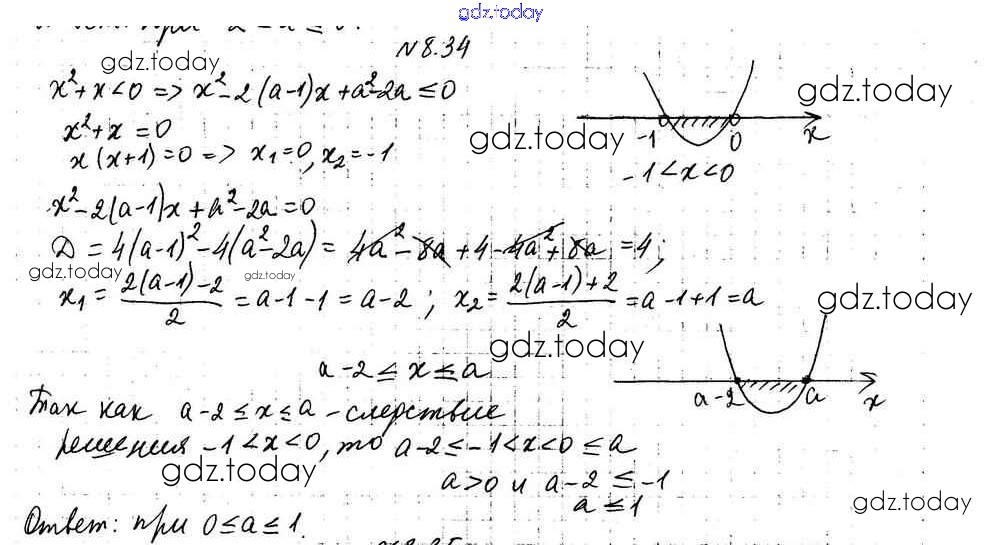 gdz.today
№ 8.34
gdz.today
x²+x<0 => x²-2(a-1)x+a²-2a ≤0
gdz.today
x²+x=0
gdz.today
-1 0 x
x(x+1)=0 => x₁=0, x₂=-1
-1<x<0
x²-2(a-1)x+a²-2a=0
D = 4(a-1)²-4(a²-2a) = 4a²-8a+4-4a²+8a =4;
gdz.today gdz.today
x₁= 2(a-1)-2 / 2 = a-1-1 = a-2 ; x₂= 2(a-1)+2 / 2 = a-1+1 = a
gdz.today
gdz.today
a-2 ≤ x ≤ a
a-2 a x
Так как a-2≤x≤a - следствие
решения -1<x<0, то a-2≤-1<x<0≤a
gdz.today
a>0 и a-2 ≤ -1
a ≤ 1
gdz.today
Ответ: при 0≤a≤1.